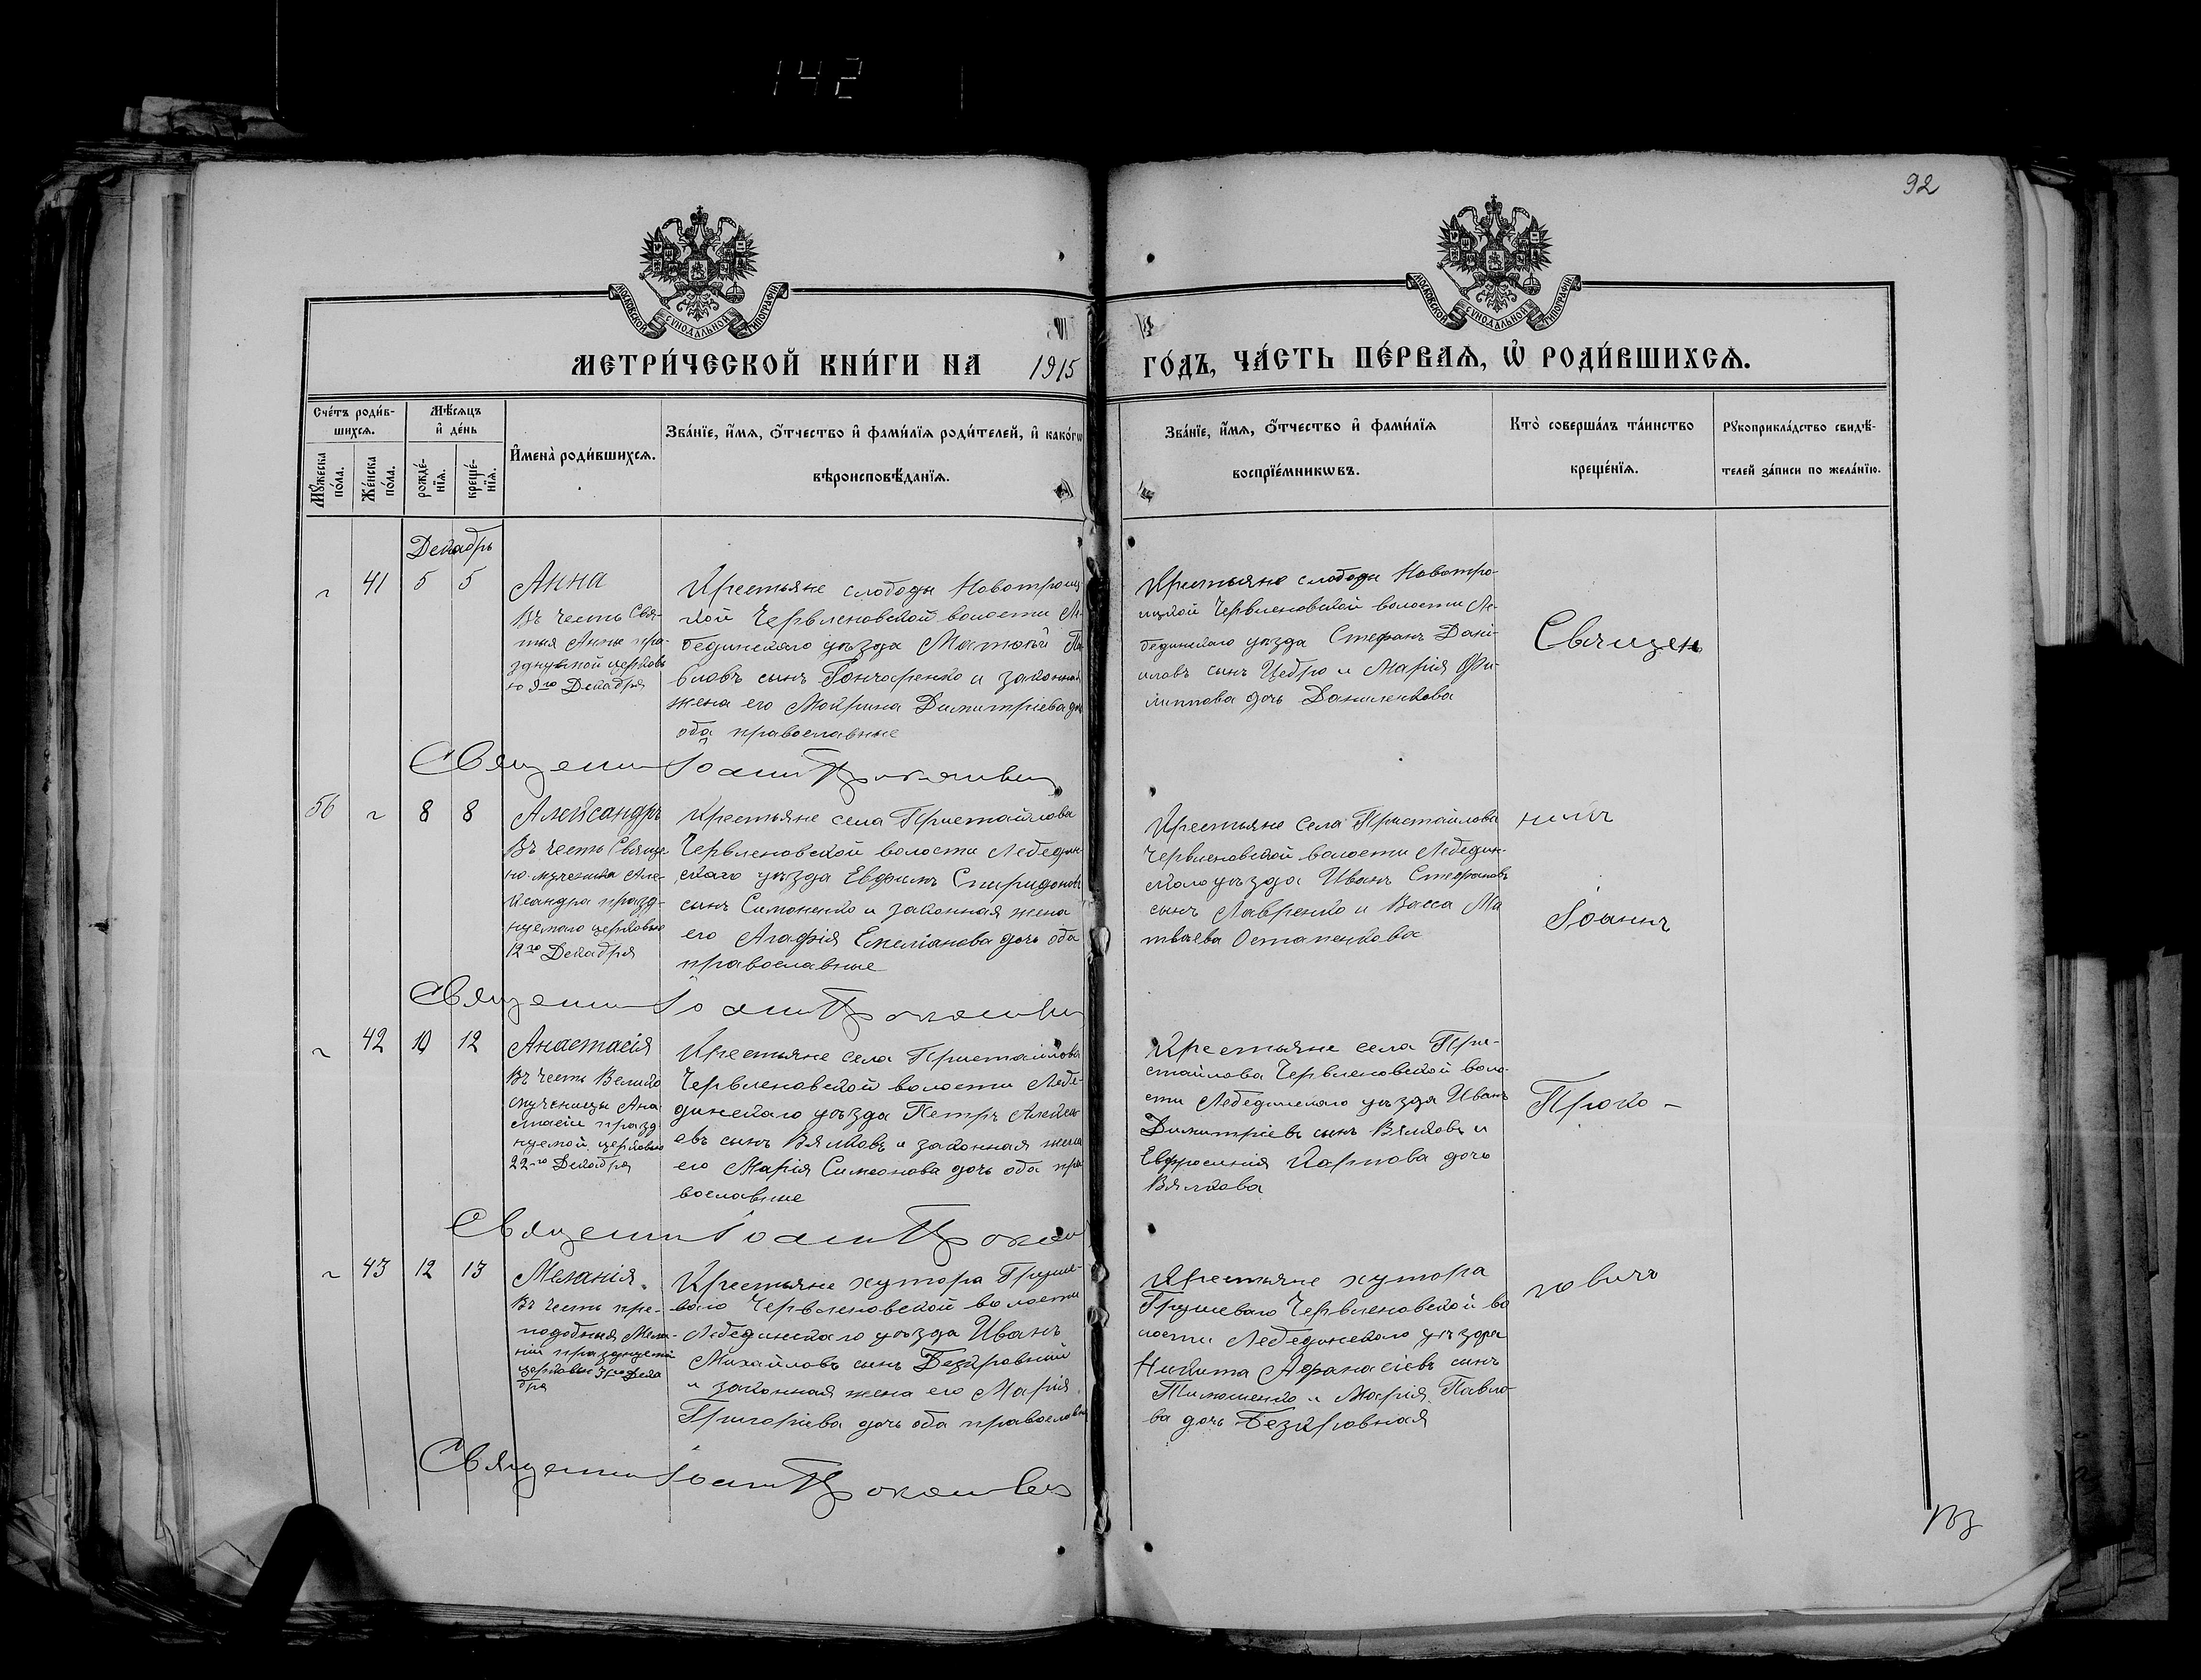 142
92
МОСКОВСКОЙ СУНОДАЛЬНОЙ ТИПОГРАФІИ
МОСКОВСКОЙ СУНОДАЛЬНОЙ ТИПОГРАФІИ
МЕТРИ́ЧЕСКОЙ КНИ́ГИ НА 1915 ГО́ДЪ, ЧА́СТЬ ПЕ́РВАѦ, Ѡ РОДИ́ВШИХСѦ.
Сче́тъ роди́в-
шихсѧ.
Мꙋ́жеска по́ла.
Же́нска по́ла.
Мѣ́сѧцъ
и҆ де́нь
рожде́-
нїѧ.
креще́-
нїѧ.
И҆мена̀ роди́вшихсѧ.
Зва́нїе, и҆́мѧ, ѻ҆́тчество и҆ фами́лїѧ роди́телей, и҆ како́гѡ
вѣроисповѣ́данїѧ.
Зва́нїе, и҆́мѧ, ѻ҆́тчество и҆ фами́лїѧ
воспрїе́мникѡвъ.
Кто̀ соверша́лъ та́инство
креще́нїѧ.
Рꙋкоприкла́дство свидѣ́-
телей за́писи по жела́нїю.
Декабрь
41 5 5
Анна
Въ честь Свя-
тыя Анны пра-
зднуемой церковь
ю 9го Декабря
Крестьяне слободы Новотроиц-
кой Червленовской волости Ле-
бединскаго уѣзда Матѳей Па
вловъ сынъ Гончаренко и законная
жена его Мокрина Димитріева дочь
оба православные
Крестьяне слободы Новотро-
ицкой Червленовской волости Ле-
бединскаго уѣзда Стефанъ Дані-
иловъ сынъ Цебро и Марія Фи-
липпова дочь Даниленкова
Священ
Священни Іоанн Прокопович
56 8 8
Александръ
Въ честь Священ
но-мученика Але-
ксандра празд-
нуемаго церковью
12го Декабря
Крестьяне села Пристайлова
Червленовской волости Лебедин-
скаго уѣзда Евфимъ Спиридоновъ
сынъ Симоненко и законная жена
его Агафія Емеліанова дочь оба
православные
Крестьяне села Пристайлова
Червленовской волости Лебедин-
скаго уѣзда Иванъ Стефановъ
сынъ Лавренко и Васса Ма
твѣева Остапенкова
никъ
Іоаннъ
Священни Іоанн Прокопович
42 10 12
Анастасія
Въ честь Велико
мученицы Ана
стасіи празд
нуемой церковью
22го Декабря
Крестьяне села Пристайлова
Червленовской волости Лебе-
динскаго уѣзда Петръ Алексѣ
евъ сынъ Вялковъ и законная жена
его Марія Симеонова дочь оба пра
вославные
Крестьяне села При-
стайлова Червленовской воло-
сти Лебединскаго уѣзда Иванъ
Димитріевъ сынъ Вялковъ и
Евфросинія Карпова дочь
Вялкова
Проко-
Священни Іоанн Прокоп
43 12 13
Меланія
Въ честь пре-
подобныя Мела-
ніи празднуемой
церковью 31го Дека
бря
Крестьяне хутора Груше-
ваго Червленовской волости
Лебединскаго уѣзда Иванъ
Михайловъ сынъ Безкровный
и законная жена его Марія
Григоріева дочь оба православны
Крестьяне хутора
Грушеваго Червленовской во
лости Лебединскаго уѣзда
Никита Аѳанасіевъ сынъ
Тимошенко и Марія Павло-
ва дочь Безкровная
повичъ
Священни Іоанн Прокопович